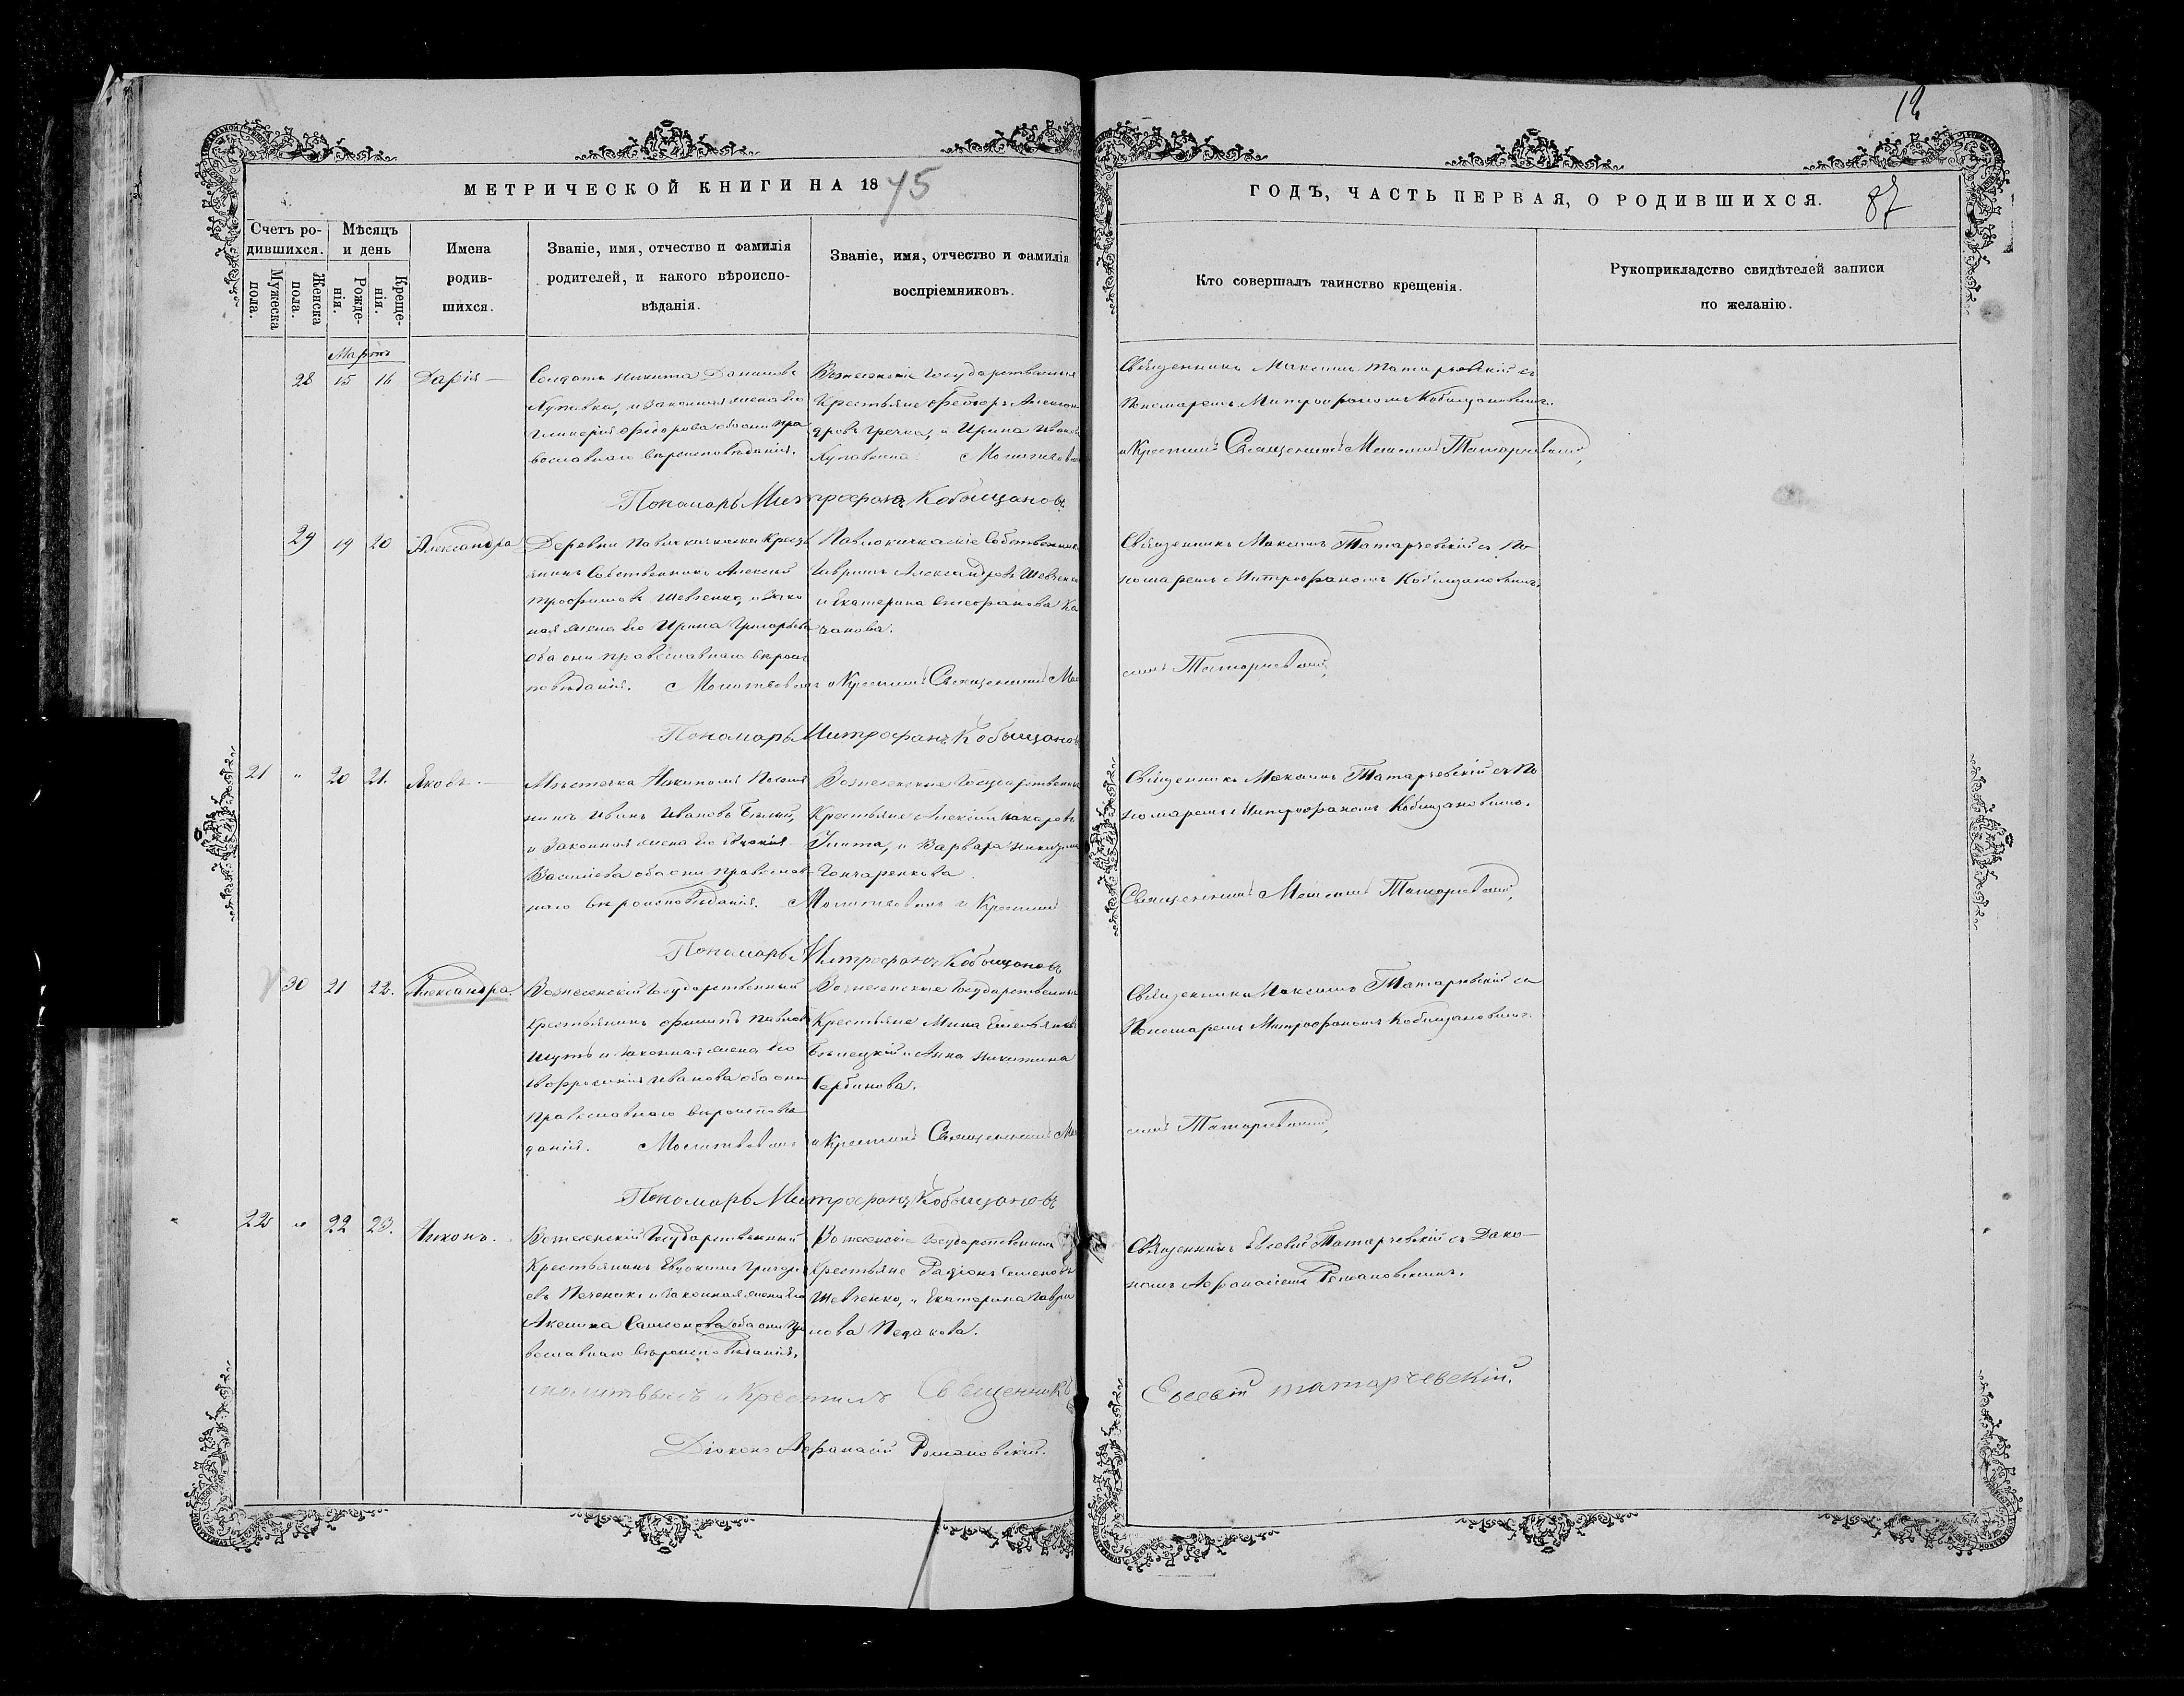 12
МЕТРИЧЕСКОЙ КНИГИ НА 1875
ГОДЪ, ЧАСТЬ ПЕРВАЯ, О РОДИВШИХСЯ.
87
Счетъ ро-
дившихся.
Мужеска
пола.
Женска
пола.
Мѣсяцъ
и день
Рожде-
нія.
Креще-
нія.
Имена
родив-
шихся.
Званіе, имя, отчество и фамилія
родителей, и какого вѣроиспо-
вѣданія.
Званіе, имя, отчество и фамилія
воспріемниковъ.
Кто совершалъ таинство крещенія.
Рукоприкладство свидѣтелей записи
по желанію.
Мартъ
28 15 16 Дарія
Солдатъ Никита Даниловъ
и законная жена Его
Гликерія Феодорова оба они пра
вославнаго вѣроисповѣданія.
Вознесенскіе Государственные
Крестьяне Феодоръ Алексан
дровъ Гречка, и Ирина Иванов
Молитвовал
Священникъ Максимъ Татарчевскій съ
Пономаремъ Митрофаномъ Кобыщановымъ.
и Крестилъ Священникъ Максимъ Татарчевскій
Пономарь Митрофанъ Кобыщановъ
29 19 20 Александра
Деревни Крестья
нинъ Собственникъ Алексей
Трофимовъ Шевченко, и Зако
ная жена Его Ирина Григорьева
оба они православнаго вѣроис
повѣданія. Молитвовалъ и Крестилъ Священникъ Мак
Павлокичкаскіе Собственники
Гавріилъ Александровъ Шевченк
и Екатерина Стефанова Ка
чанова.
Священникъ Максимъ Татарчевскій съ По-
номаремъ Митрофаномъ Кобыщановымъ.
симъ Татарчевскій
Пономарь Митрофанъ Кобыщановъ
21 " 20 21. Яковъ.
Мѣстечка Никополя Поселя
нинъ Иванъ Ивановъ Бѣлый,
и Законная жена Его Евдокія
Васильева оба они православ
наго вѣроисповѣданія. Молитвовалъ и Крестилъ
Вознесенскіе Государственные
Крестьяне Алексѣй Макаровъ
и Варвара
Гончаренкова
Священникъ Максимъ Татарчевскій съ По
номаремъ Митрофаномъ Кобыщановымъ.
Священникъ Максимъ Татарчевскій
Пономарь Митрофанъ Кобыщановъ
30 21 22. Александра.
Вознесенскій Государственный
Крестьянинъ Филиппъ Павловъ
Шутъ и Законная жена Его
Евфросинія Иванова оба они
Православнаго вѣроисповѣ
данія. Молитвовалъ и Крестилъ Священникъ Мак
Вознесенскіе Государственные
Крестьяне Мина Емельяновъ
и Анна Никитина
Сербинова.
Священникъ Максимъ Татарчевскій съ
Пономаремъ Митрофаномъ Кобыщановымъ.
симъ Татарчевскій
Пономарь Митрофанъ Кобыщановъ
22 " 22 23. Никонъ.
Вознесенскій Государственный
Крестьянинъ Евдокимъ Григорі
евъ Печеникъ и Законная жена Его
Акелина Самсонова оба они Пра
вославнаго вѣроисповѣданія.
Вознесенскіе Государственные
Крестьяне Радіонъ Семеновъ
Шевченко, и Екатерина Гаври
лова Педакова.
Священникъ Евсевій Татарчевскій съ Дако-
номъ Афанасіемъ Романовскимъ.
молитвовалъ и Крестилъ Священникъ Евсевій Татарчевскій.
Діаконъ Афанасій Романовскій.